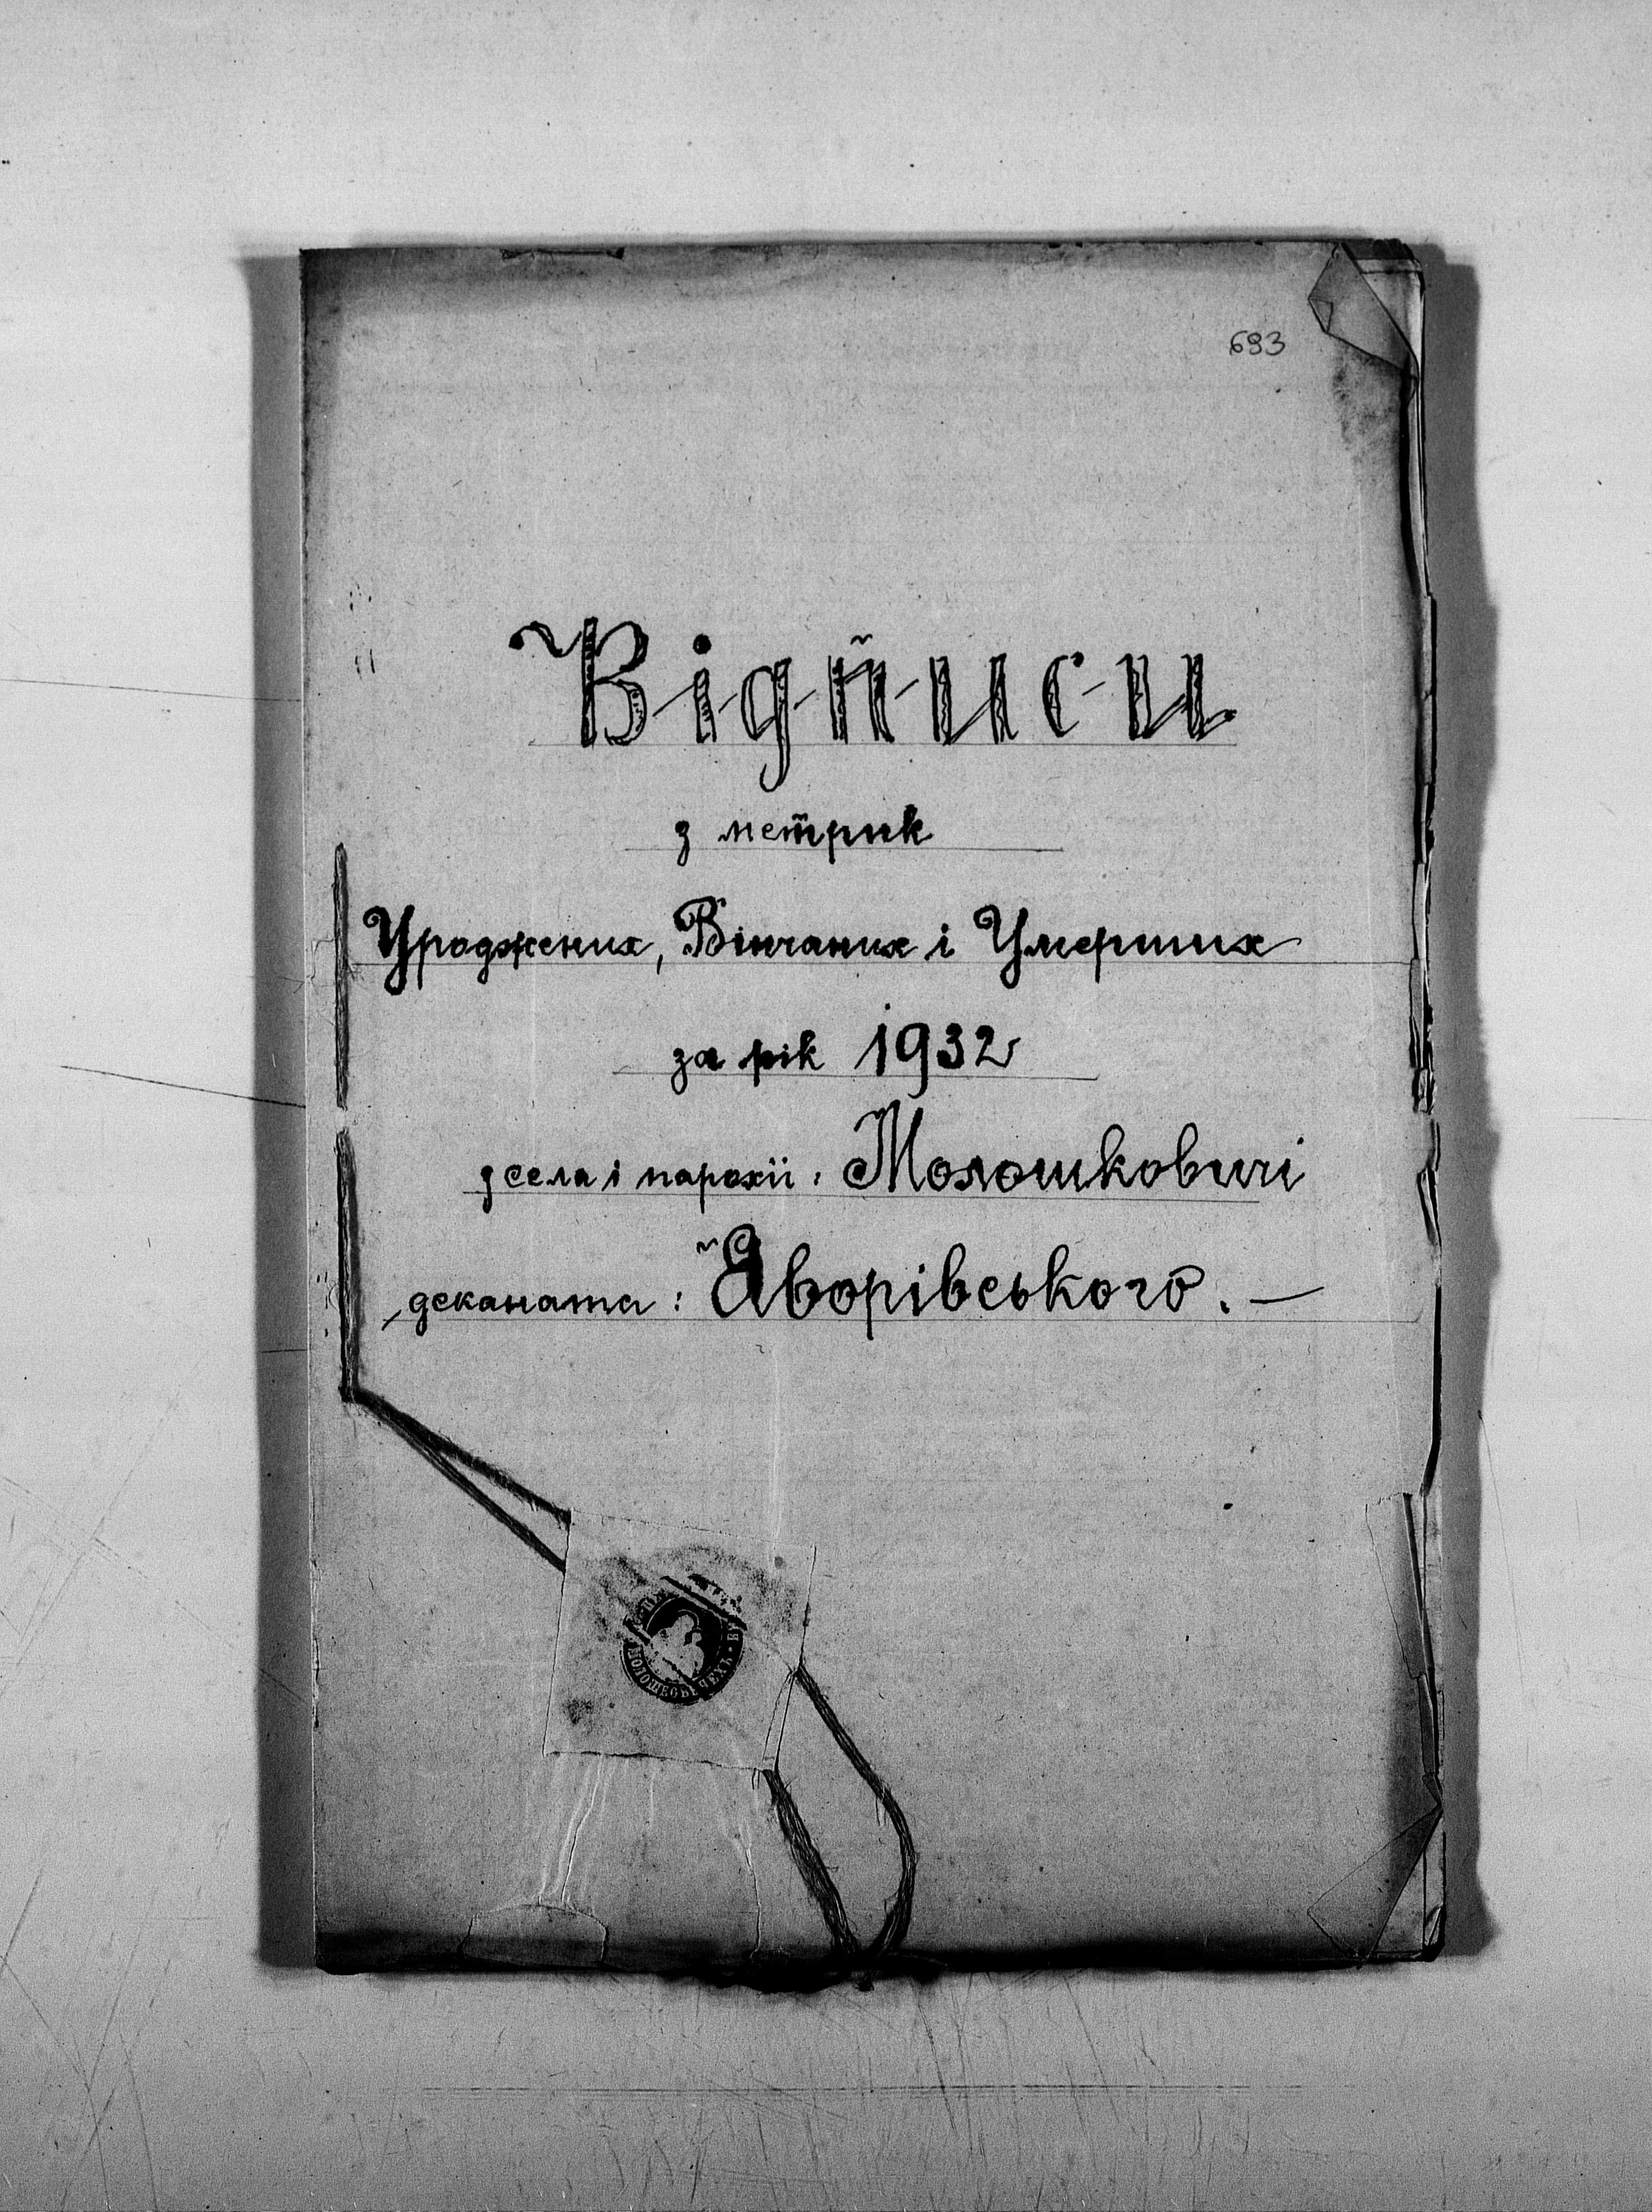 693
Відписи
з метрик
Уроджених, Вінчаних і Умерших
за рік 1932
з села і парохії: Молошковичі
деканата: Яворівського. —